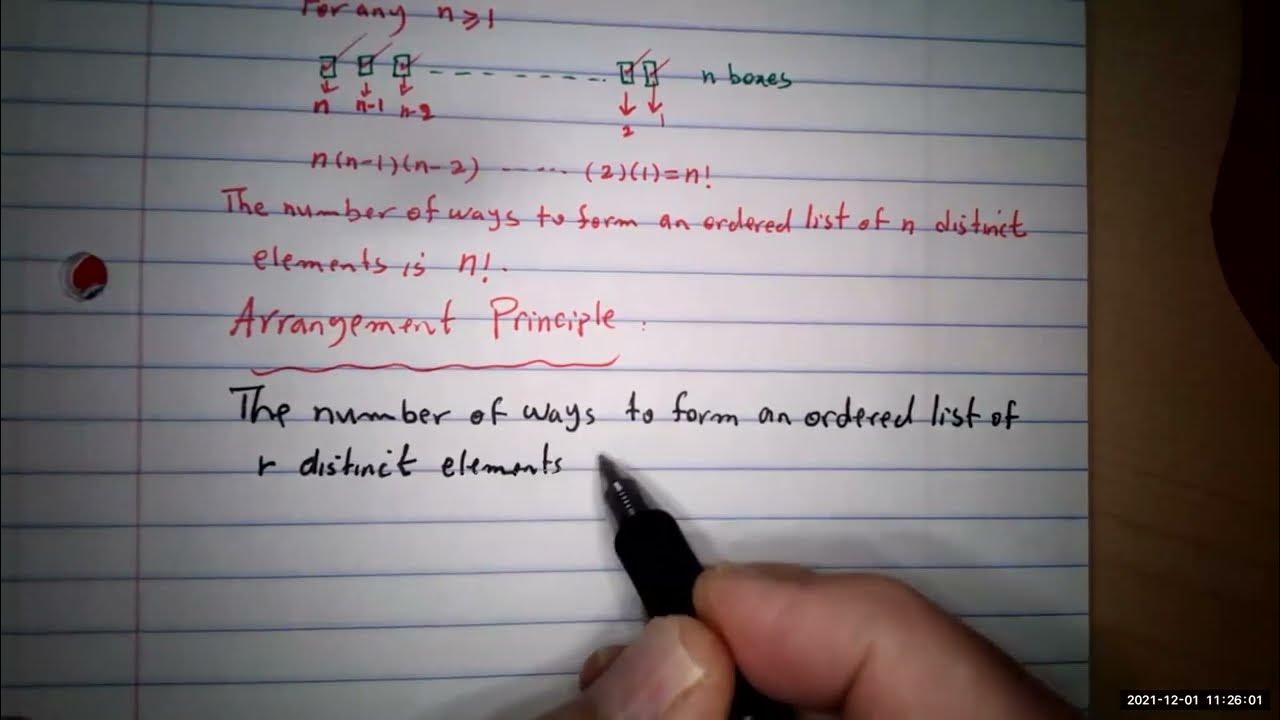 For any n ≥ 1
n boxes
n n-1 n-2 2 1
n(n-1)(n-2) ------ (2)(1)=n!
The number of ways to form an ordered list of n distinct
elements is n!.
Arrangement Principle:
The number of ways to form an ordered list of
r distinct elements
2021-12-01 11:26:01